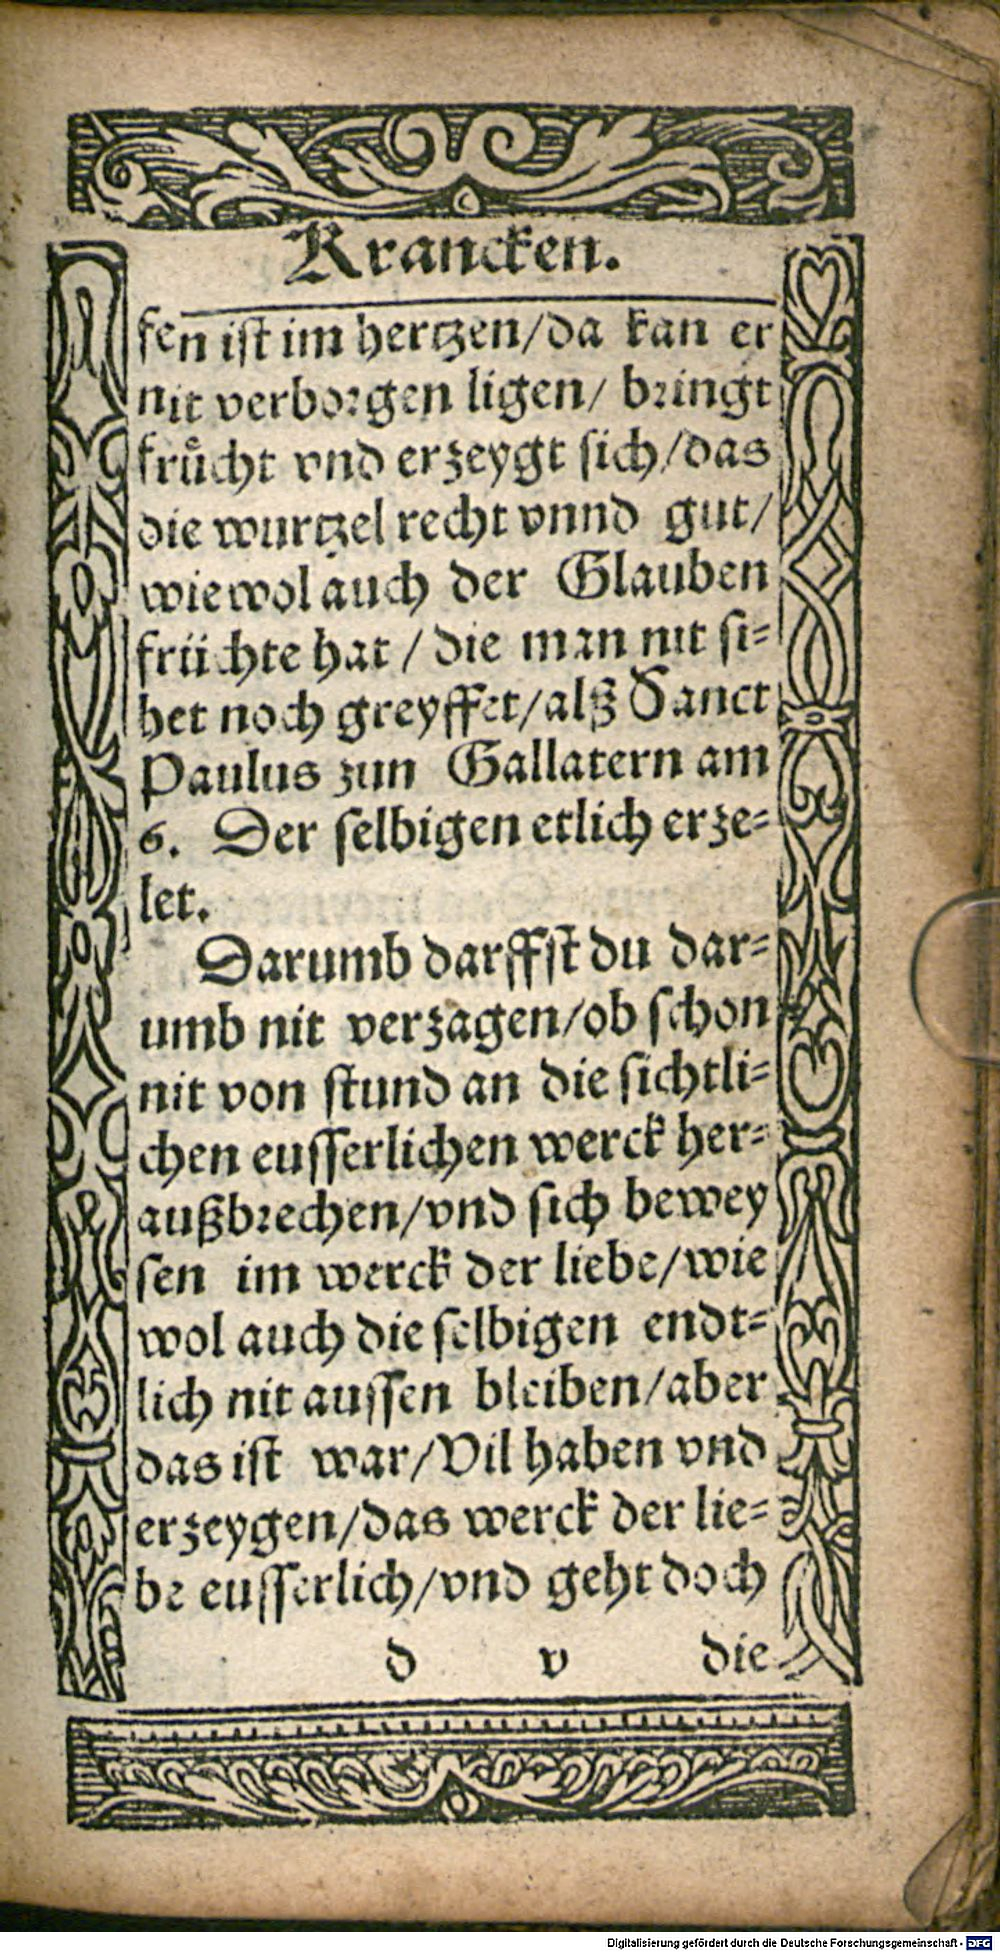 Krancken.
fen ist im hertzen/da kan er
nit verborgen ligen/ bringt
frůcht vnd erzeygt sich/das
die wurtzel recht vnnd gut/
wiewol auch der Glauben
früchte hat / die man nit si⸗
het noch greyffet/alß Sanct
Paulus zun Gallatern am
6. Der selbigen etlich erze⸗
let.
Darumb darffst du dar⸗
umb nit verzagen/ob schon
nit von stund an die sichtli⸗
chen eusserlichen werck her⸗
außbrechen/vnd sich bewey
sen im werck der liebe/wie
wol auch die selbigen endt⸗
lich nit aussen bleiben/aber
das ist war/Vil haben vnd
erzeygen/das werck der lie⸗
be eusserlich/vnd geht doch
d v die
Digitalisierung gefördert durch die Deutsche Forschungsgemeinschaft - DFG